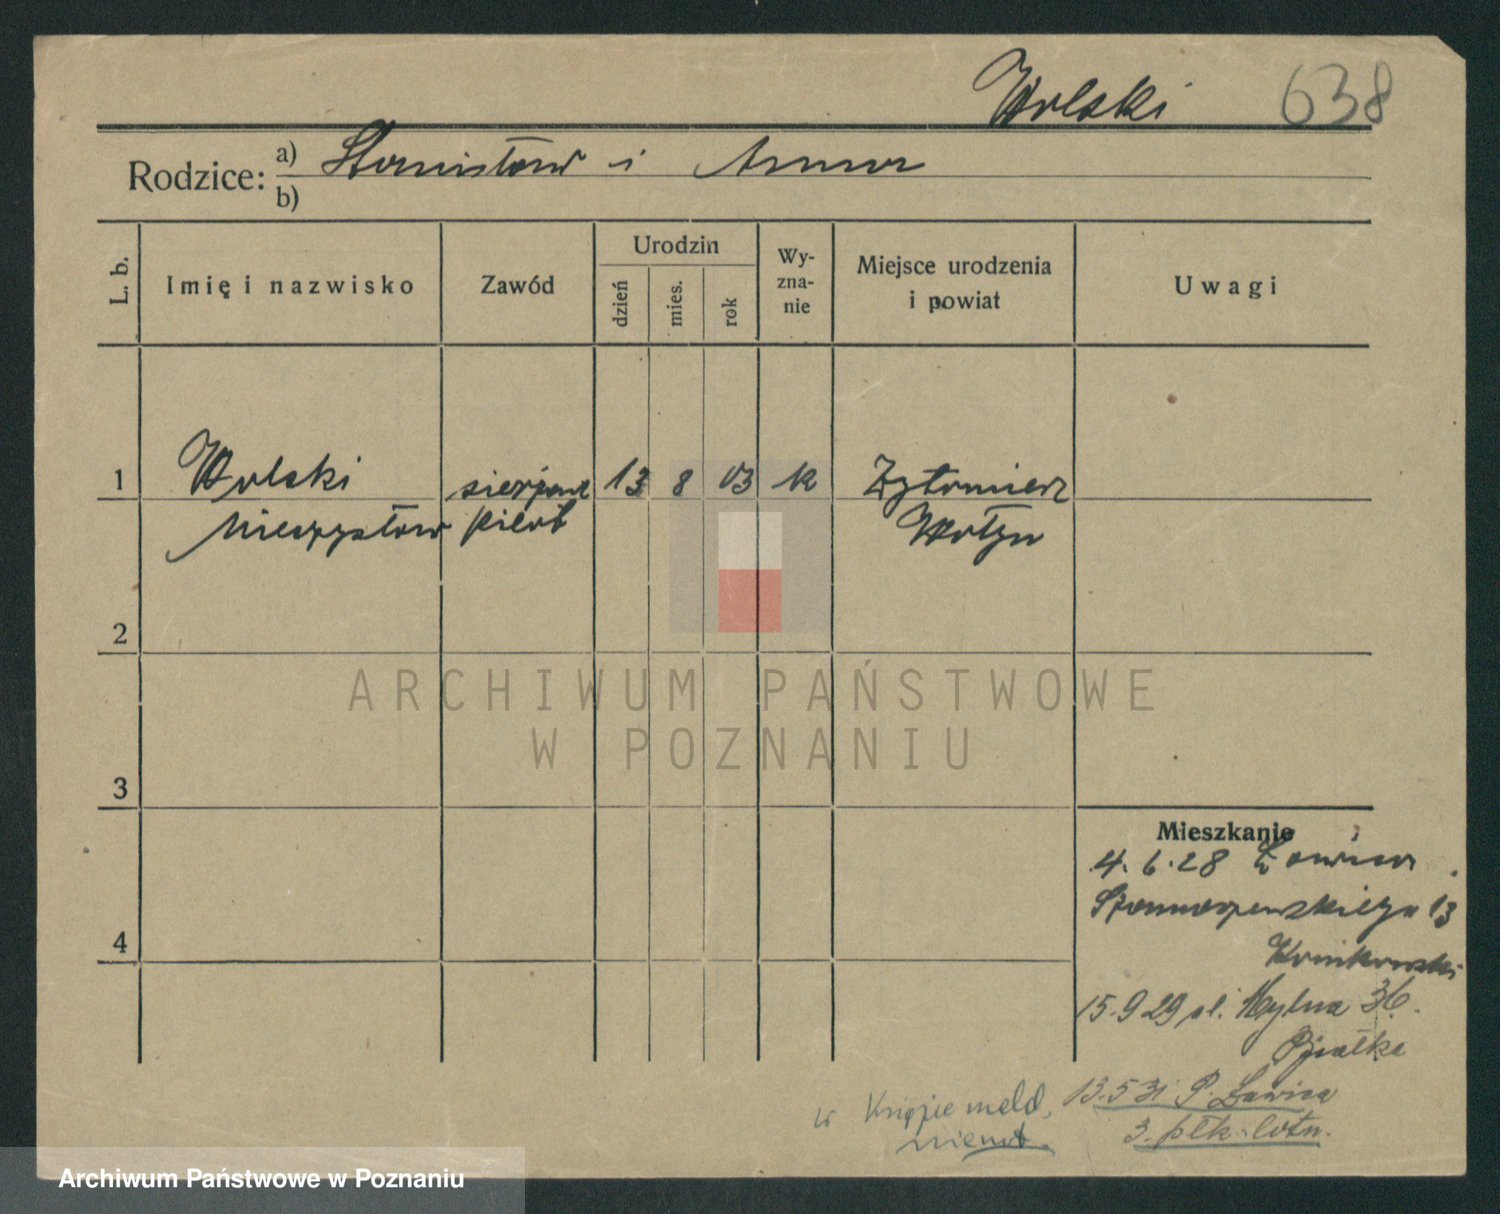 Wolski 638
Rodzice: a) Stanisław i Anna
b)
L. b. Imię i nazwisko Zawód Urodzin dzień mies. rok Wy-zna-nie Miejsce urodzenia i powiat Uwagi
1 Wolski sierżant 13 8 03 rk Żytomierz
Mieczysław pilot Wołyń
2
ARCHIWUM PAŃSTWOWE
W POZNANIU
3
Mieszkanie
4.6.28 Ławica
Szamarzewskiego 13
4
15.9 29 ul. Mylna 36.
13.5 31 P. Ławica
w Księdze meld.
3. płk. lotn.
Archiwum Państwowe w Poznaniu